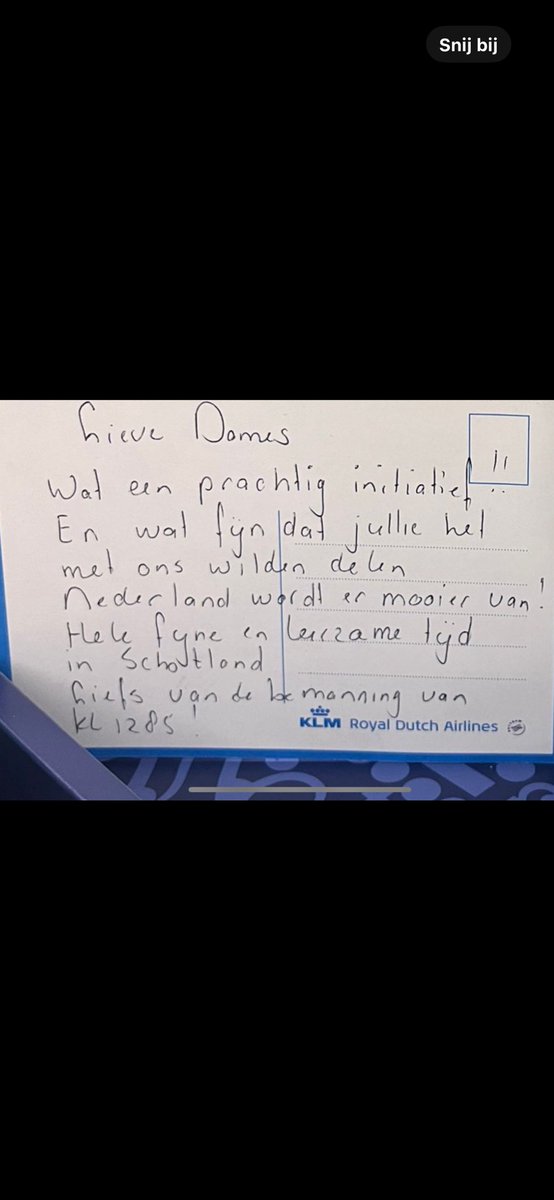 Snij bij
Lieve Dames
Wat een prachtig initiatief!!..
En wat fijn dat jullie het
met ons wilden delen
Nederland wordt er mooier van!
Hele fijne en leerzame tijd
in Schotland
Liefs van de bemanning van
KL 1285!
KLM Royal Dutch Airlines